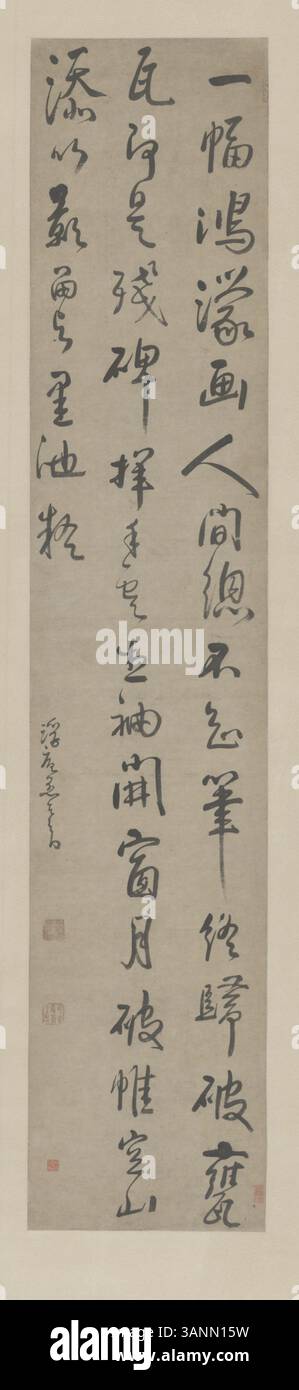 一幅鴻濛画人間總不知筆終歸破甕
瓦是殘碑揮手雲生袖開窗月破帷空山
添留與墨池
浮廬愚者
alamy
Image ID: 3ANN15W
www.alamy.com